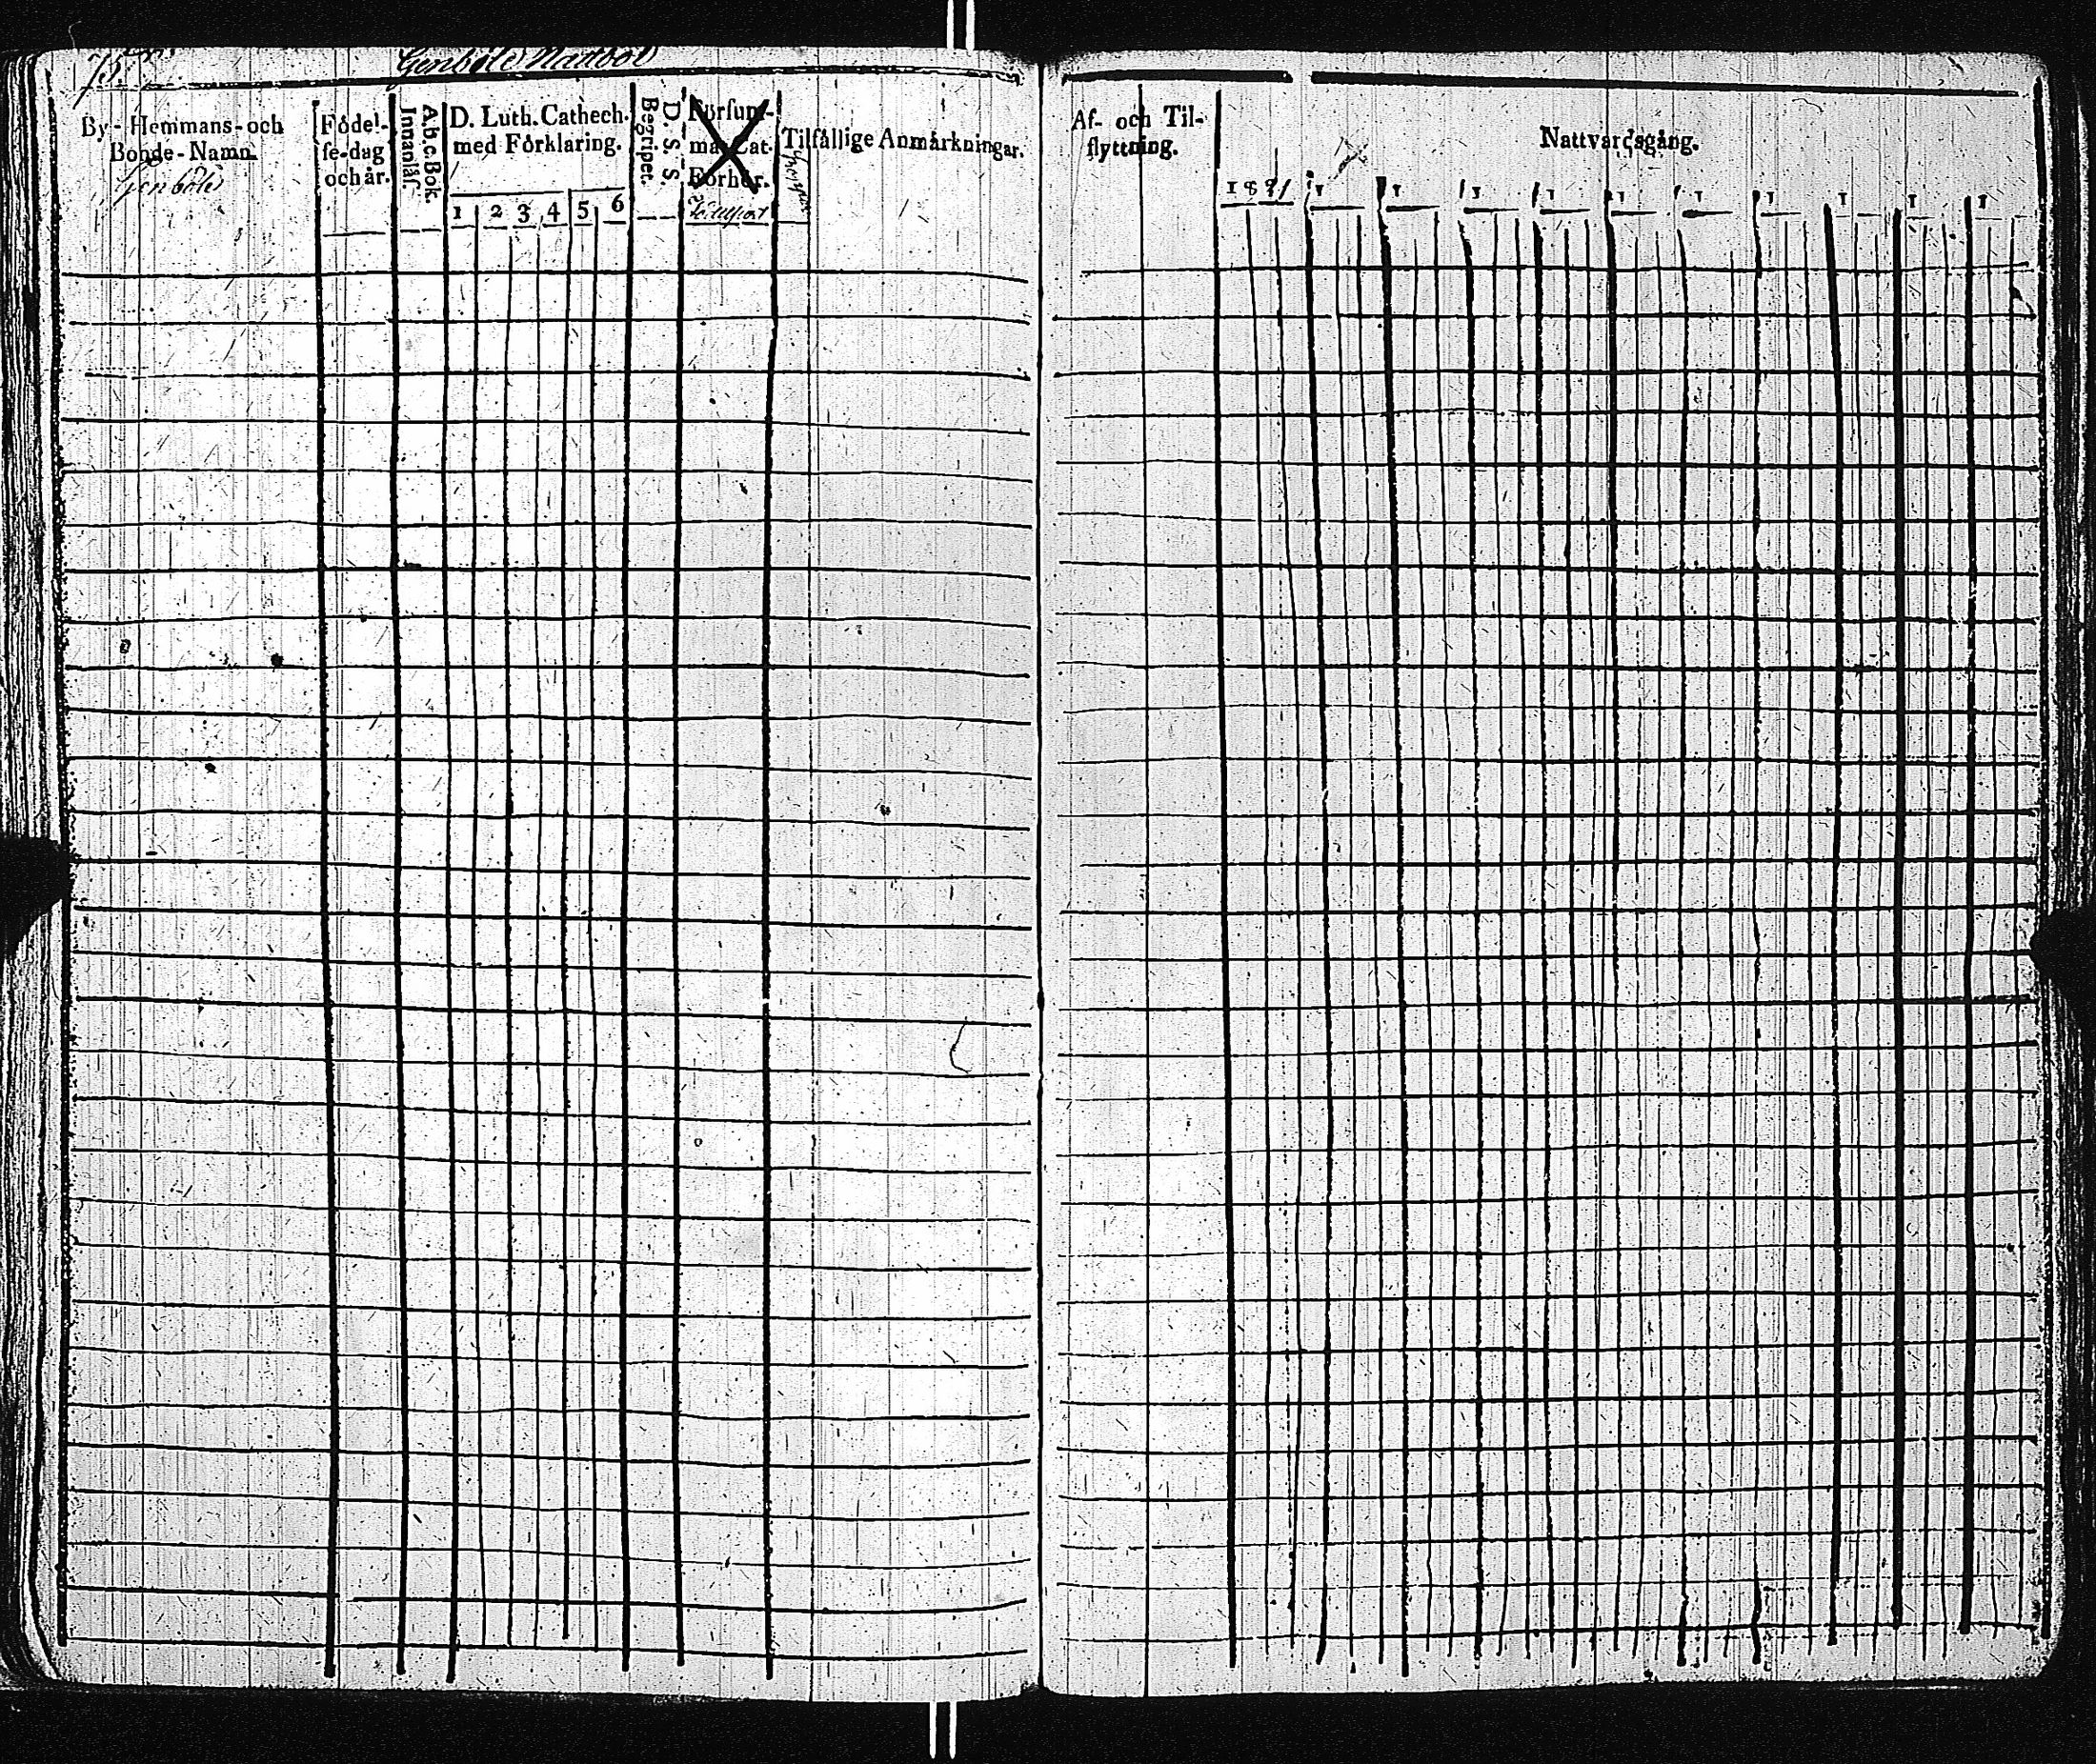 75.
Genböle
By- Hemmans- och
Bonde- Namn.
Genböle
Födel-
se-dag
och år.
A.b.c.Bok.
Innanläs.
D. Luth. Cathech.
med Förklaring.
1 2 3 4 5 6
D. S. S.
Begripet.
Försum-
ma Cat.
Förhör.
Tilfällige Anmärkningar.
Af- och Til-
flyttning.
Nattvardsgång.
1821 1 1 1 1 1 1 1 1 1 1